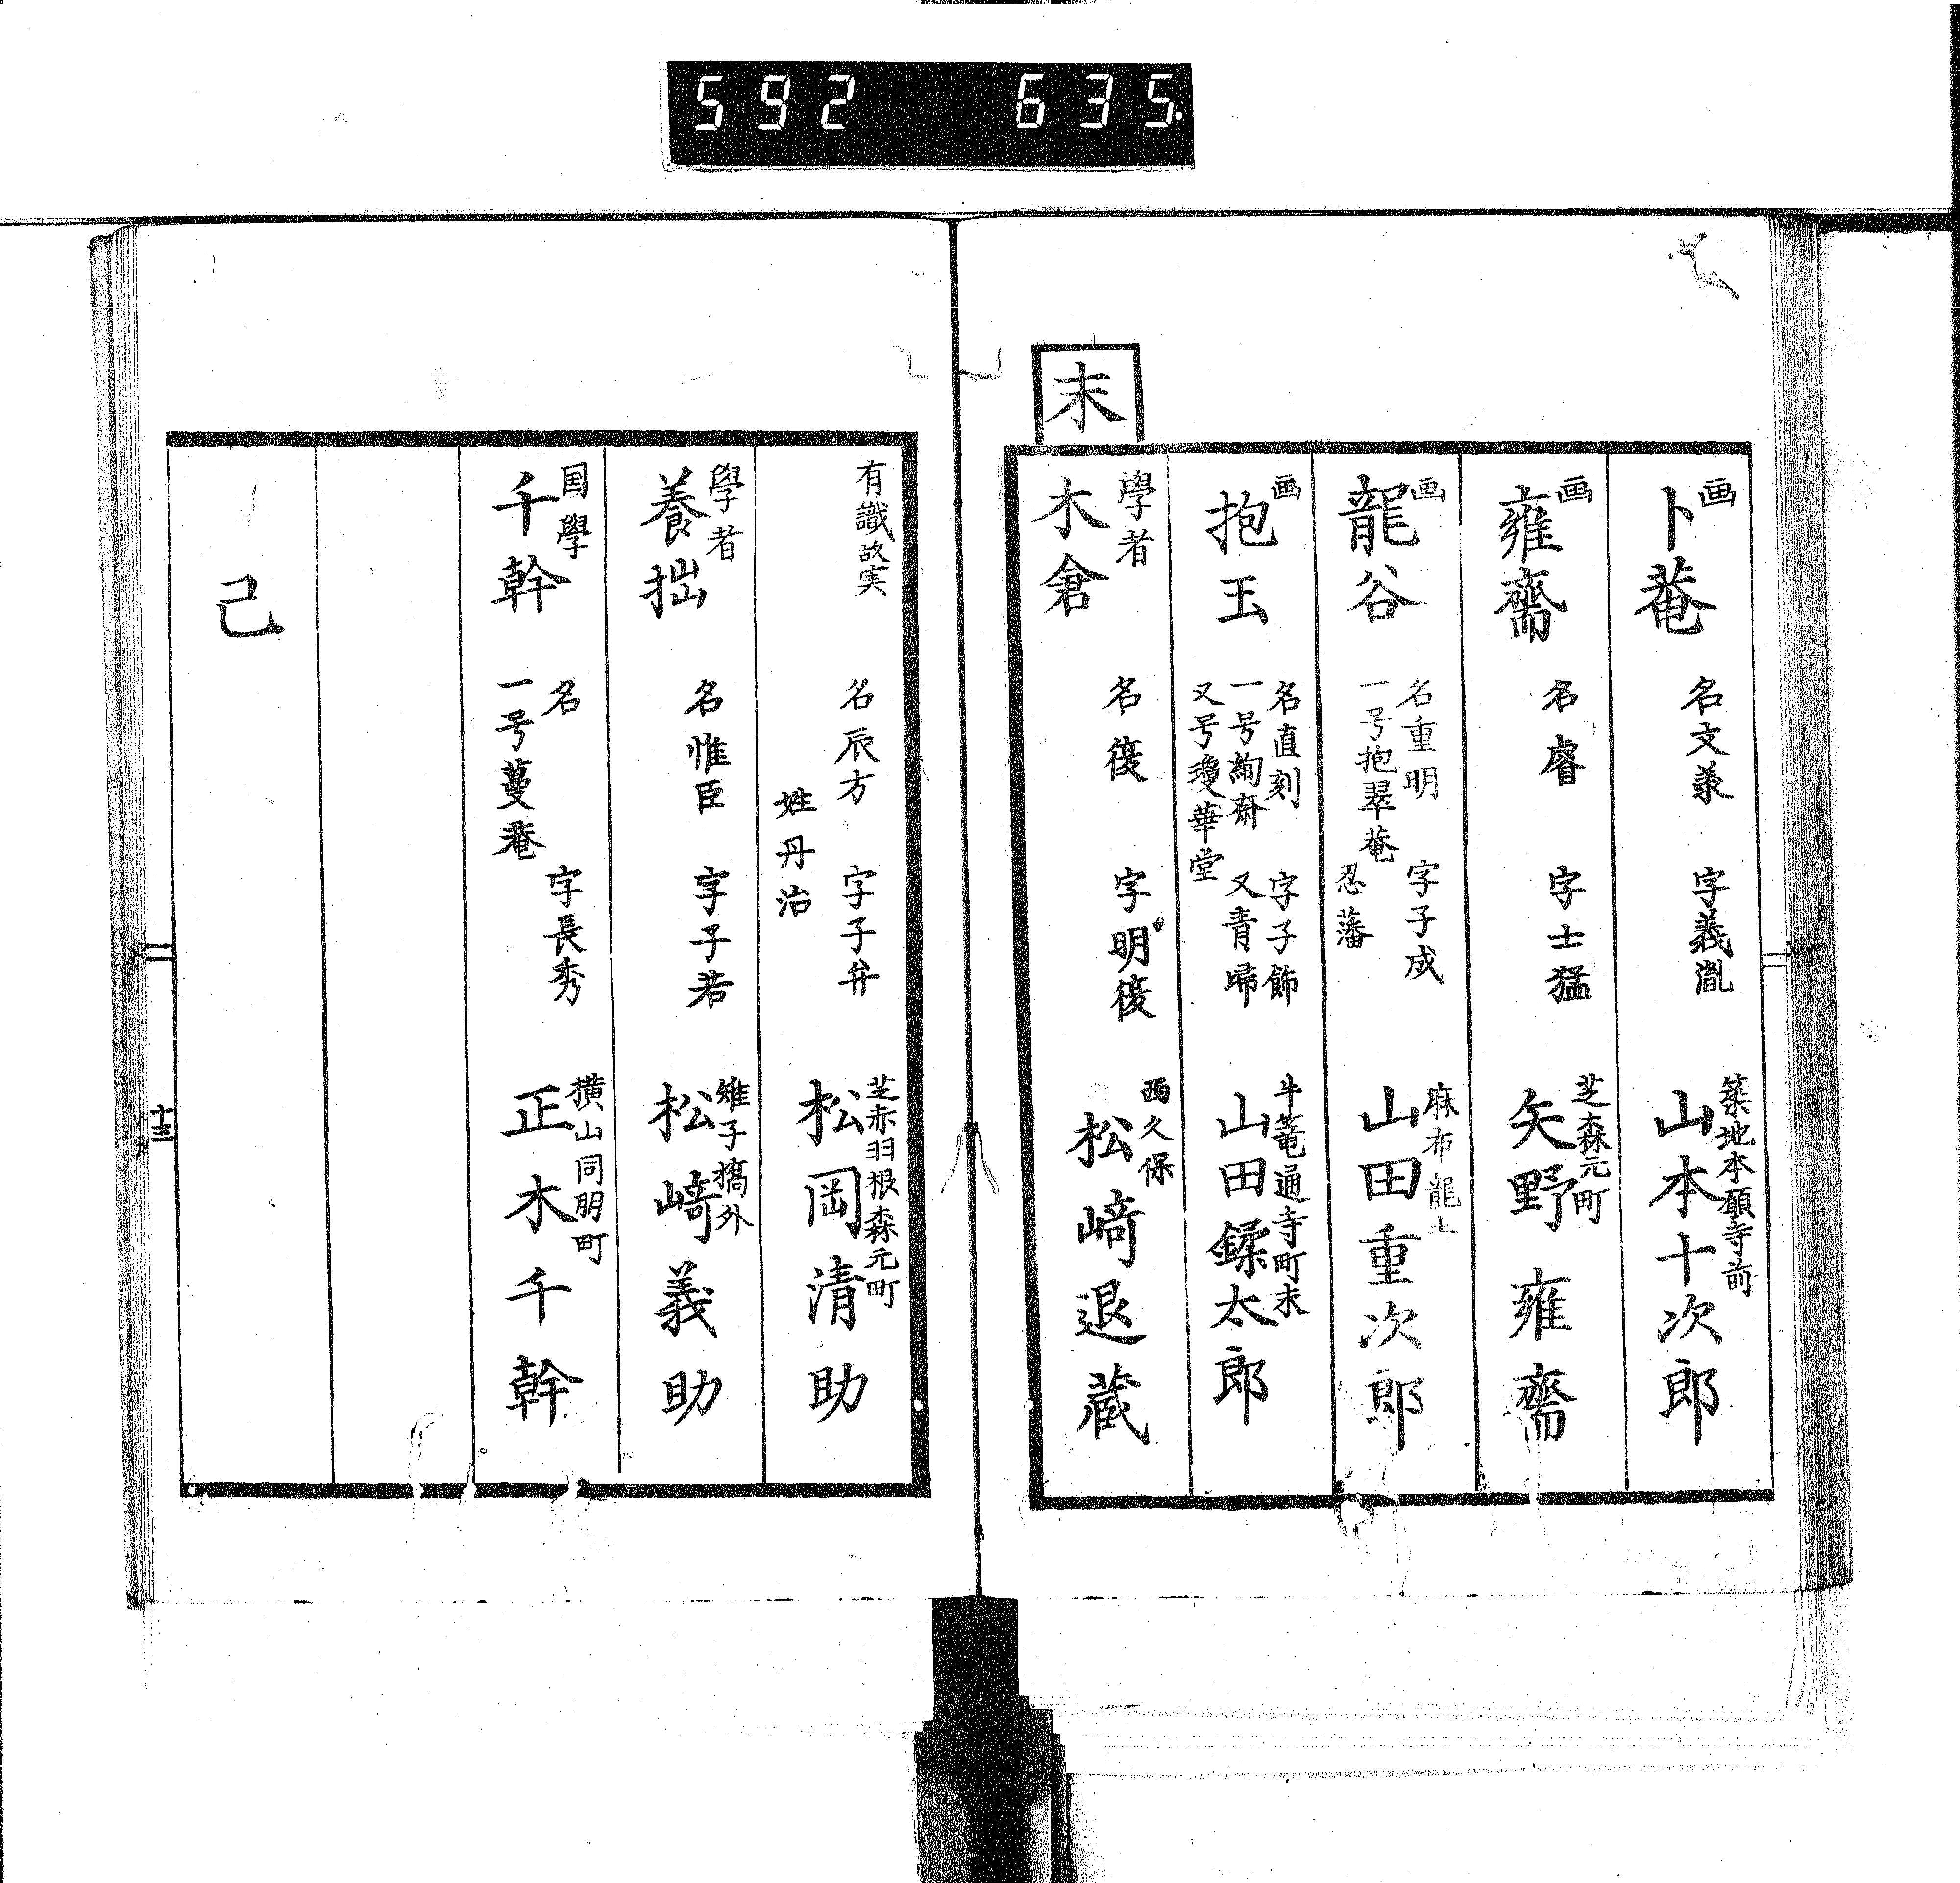 592 635.
画
卜菴
名文㒼 字義胤
築地本願寺前
山本十次郎
画
雍齋
名睿 字士猛
芝森元町
矢野雍齋
画
龍谷
名重明 字子成
一号抱翠菴
忍藩
麻布龍土
山田重次郎
画
抱玉
名直刻 字子飾
一号絢齋 又青帰
又号瓊華堂
牛篭通寺町末
山田鍒太郎
末
學者
木倉
名復 字明復
西久保
松﨑退蔵
有識故実
名辰方 字子弁
姓丹治
芝赤羽根森元町
松岡清助
學者
養拙
名惟臣 字子若
雉子橋外
松﨑義助
国學
千幹
名 字長秀
一号蔓菴
横山同朋町
正木千幹
己
十三